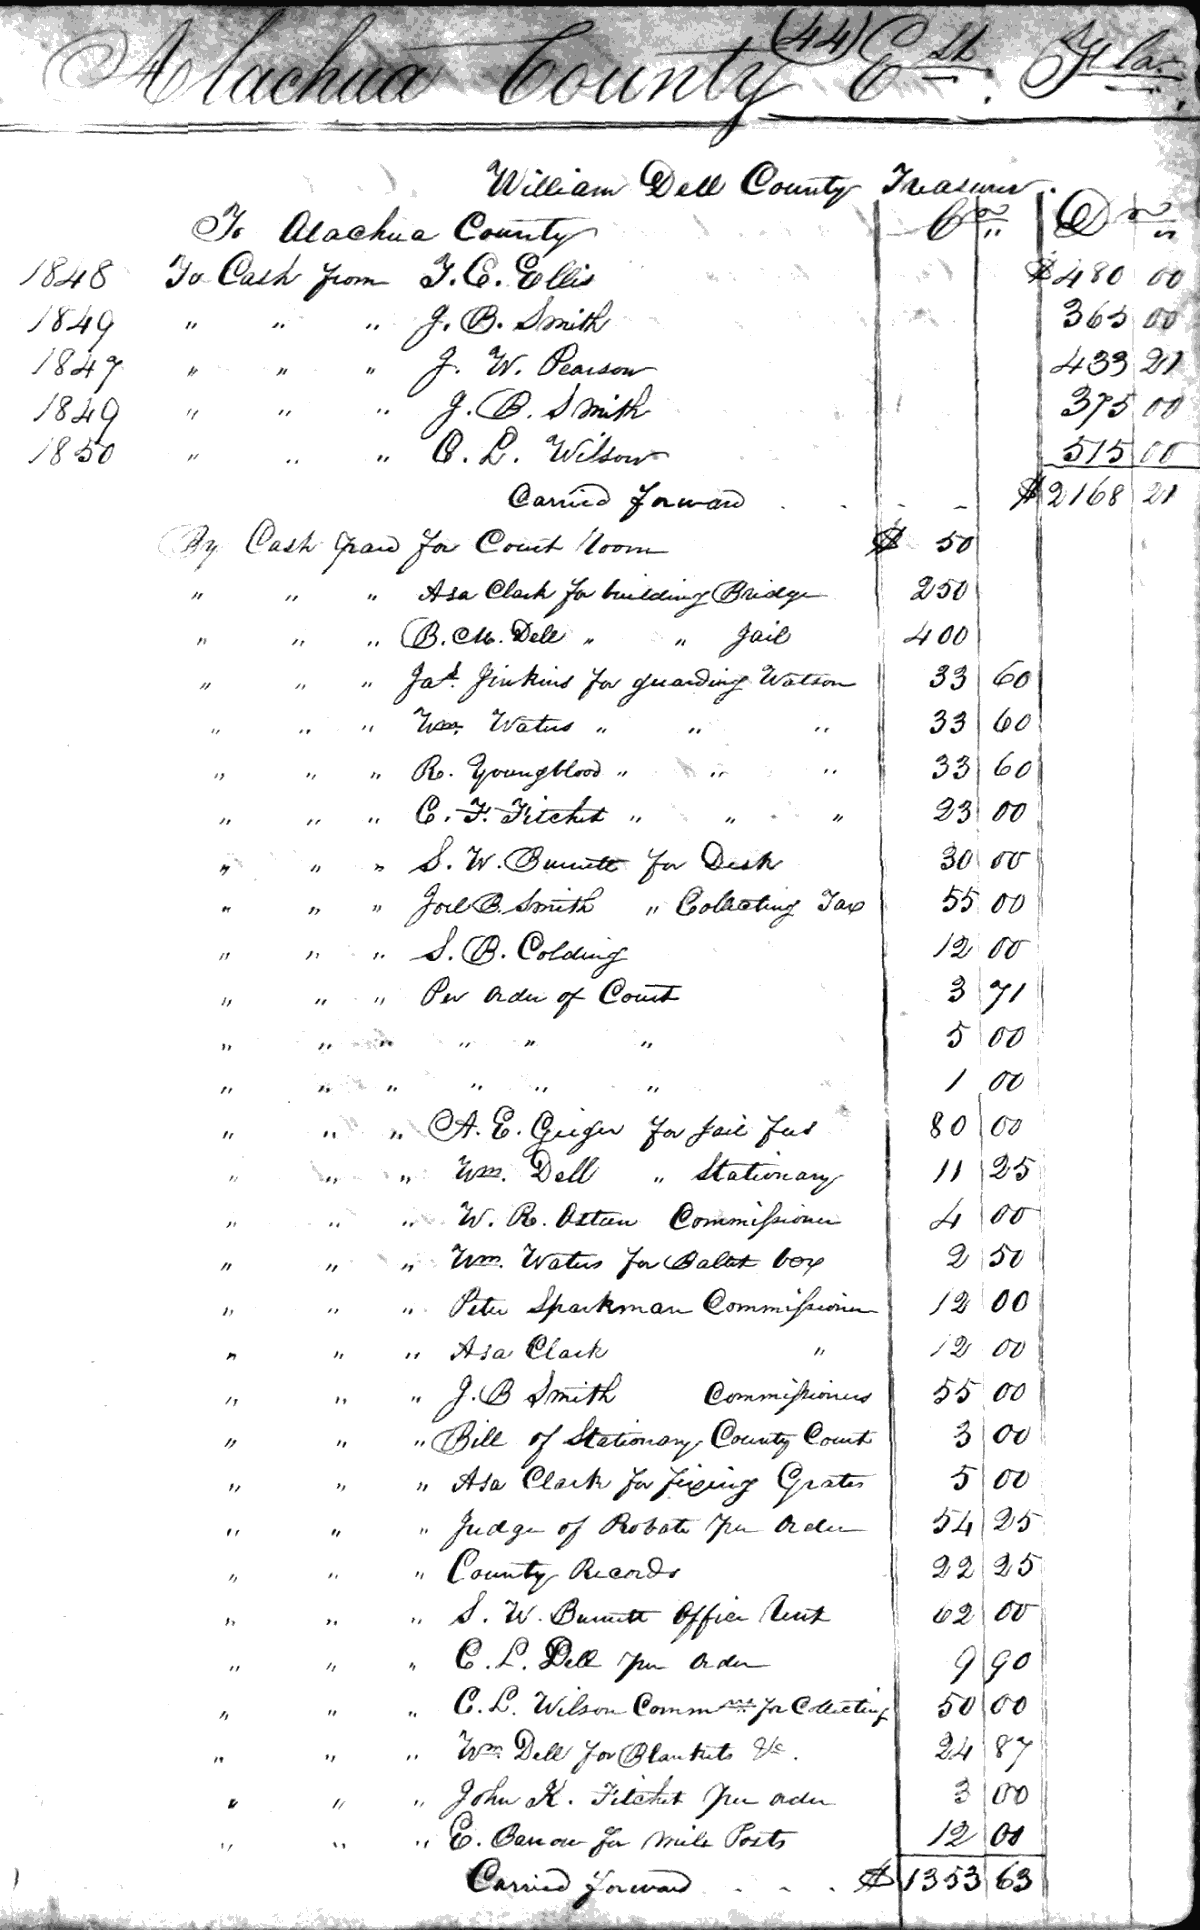 (44)
Alachua County E. Fla.
William Dell County Treasurer.
To Alachua County Cr Dr
1848 To Cash from T. C. Ellis $480 00
1849 " " " J. B. Smith 365 00
1847 " " " J. W. Pearson 433 21
1849 " " " J. B. Smith 375 00
1850 " " " C. L. Wilson 515 00
Carried forward . . - - $2168 21
By Cash paid for Court Room $ 50
" " " Asa Clark for building Bridge 250
" " " B. M. Dell " " Jail 400
" " " Jas. Jinkins for guarding Watson 33 60
" " " Wm. Waters " " " 33 60
" " " R. Youngblood " " " 33 60
" " " C. F. Fitchet " " " 23 00
" " " S. W. Burnett for Desk 30 00
" " " Joel B. Smith " Collecting Tax 55 00
" " " S. B. Colding 12 00
" " " Per order of Court 3 71
" " " " " " 5 00
" " " " " " 1 00
" " " A. E. Geiger for Jail fees 80 00
" " " Wm. Dell " Stationary 11 25
" " " W. R. Commissioner 4 00
" " " Wm. Waters for Balot box 2 50
" " " Peter Sparkman Commissioner 12 00
" " " Asa Clark " 12 00
" " " J. B Smith Commissioners 55 00
" " " Bill of Stationary County Court 3 00
" " " Asa Clark for fixing Grates 5 00
" " " Judge of Probate per order 54 25
" " " County Records 22 25
" " " S. W. Burnett Office Rent 62 00
" " " C. L. Dell per order 9 90
" " " C. L. Wilson Comm for Collecting 50 00
" " " Wm. Dell for Blankets &c. 24 87
" " " John K. Fitchet per order 3 00
" " " E. Barrow for mile Posts 12 00
Carried forward . . . $1353 63